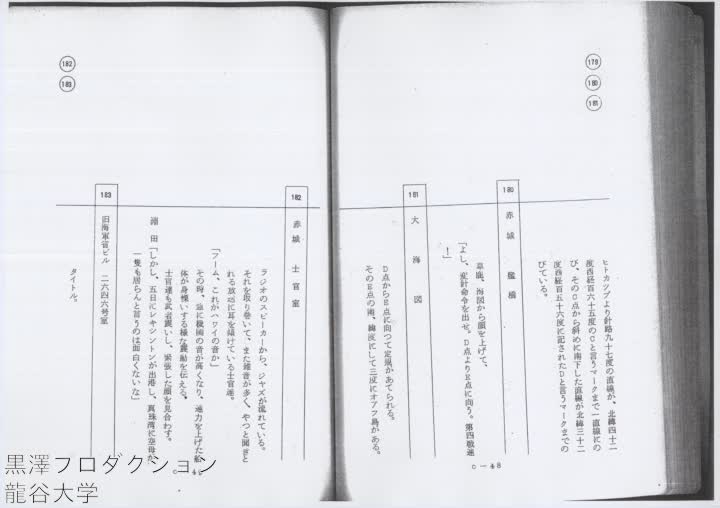 179
180
181
ヒトカツプより針路九十七度の直線が、北緯四十二
度西経百六十五度のCと言うマークまで一直線にの
び、そのC点から斜めに南下した直線が北緯三十二
度西経百五十六度に記されたDと言うマークまでの
びている。
180
赤城 艦橋
草鹿、海図から顔を上げて、
「よし、変針命令を出せ。D点よりE点に向う。第四戦速
!」
181
大海図
D点からE点に向つて定規があてられる。
そのE点の南、緯度にして三度にオアフ島がある。
C-48
182
183
182
赤城 士官室
ラジオのスピーカーから、ジヤズが流れている。
それを取り巻いて、また雑音が多く、やつと聞きと
れる放送に耳を傾けている士官達。
「フーム、これがハワイの音か」
その時、急に機関の音が高くなり、速力を上げた船
体が身慄いする様な震動を伝える。
士官達も武者震いし、緊張した顔を見合わす。
淵田「しかし、五日にレキシントンが出港し、真珠湾に空母が
一隻も居らんと言うのは面白くないな」
183
旧海軍省ビル 二六四六号室
タイトル。
黒澤プロダクション
龍谷大学